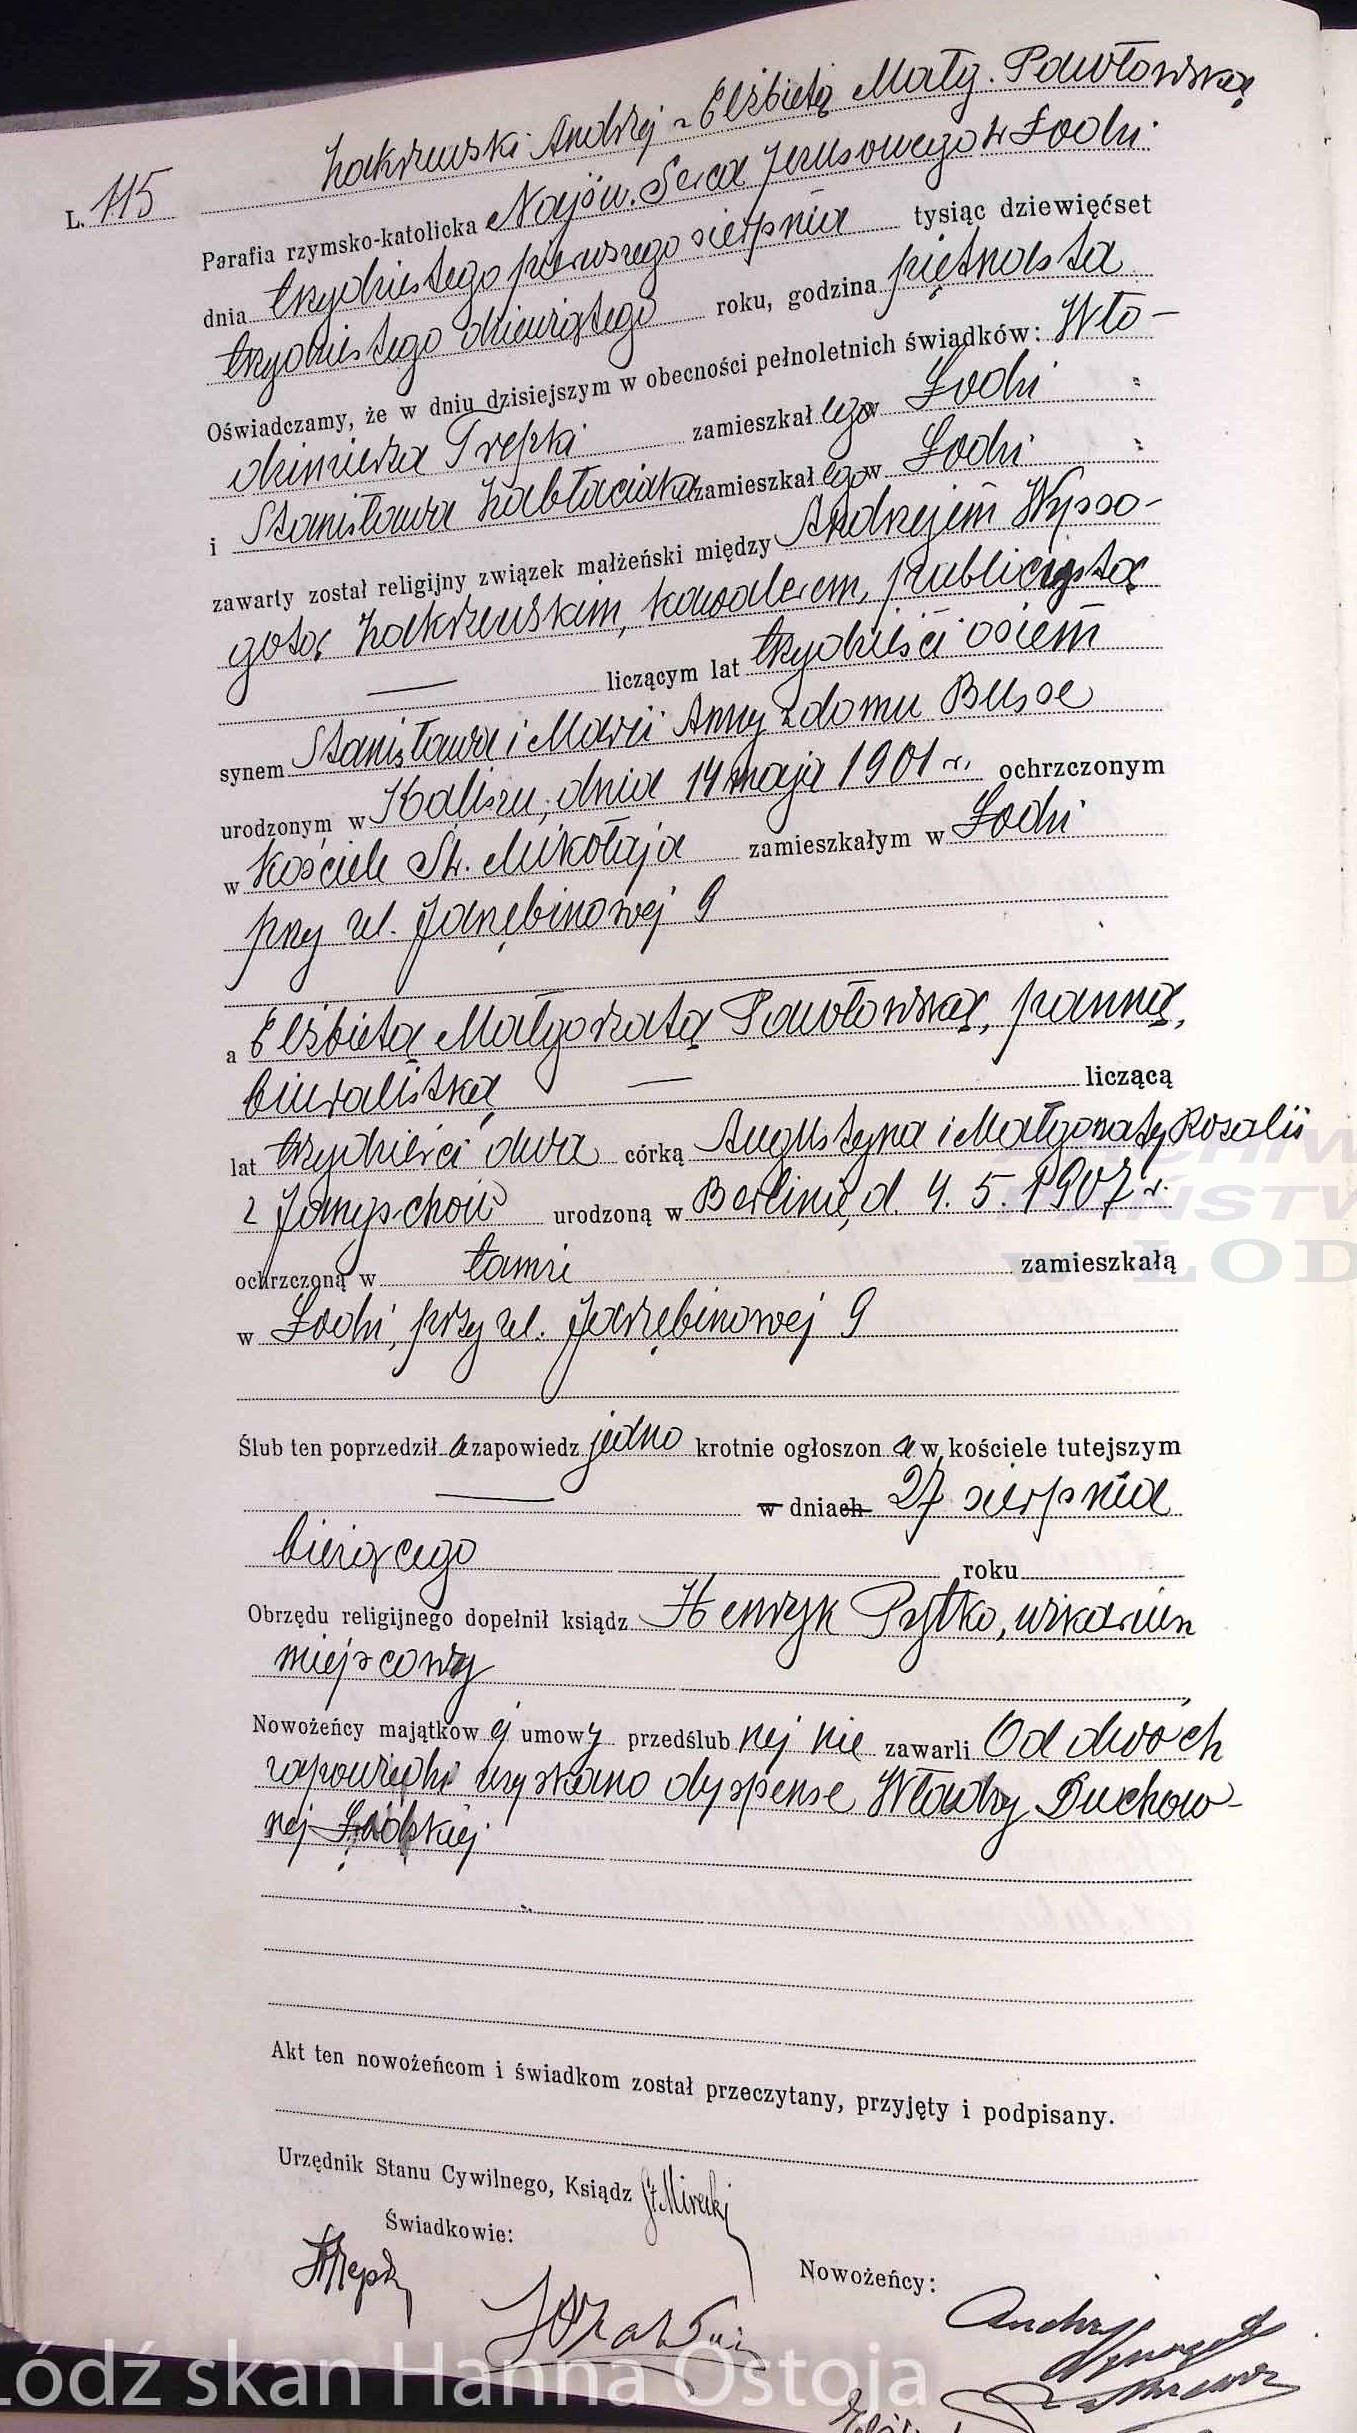 Zakrzewski Andrzej z Elżbietą Małg. Pawłowską
L. 115
Parafia rzymsko-katolicka Najśw. Serca Jezusowego w Łodzi
dnia trzydziestego pierwszego sierpnia tysiąc dziewięćset
trzydziestego dziewiątego roku, godzina piętnasta
Oświadczamy, że w dniu dzisiejszym w obecności pełnoletnich świadków: Wło-
dzimierza Trepki zamieszkałego w Łodzi
i Stanisława zamieszkałego w Łodzi
zawarty został religijny związek małżeński między Andrzejem Wysso-
gotą Zakrzewskim, kawalerem, publicystą
liczącym lat trzydzieści osiem
synem Stanisława i Marii Anny z domu Busse
urodzonym w Kaliszu, dnia 14 maja 1901 r. ochrzczonym
w kościele Św. Mikołaja zamieszkałym w Łodzi
przy ul. Jarzębinowej 9
a Elżbietą Małgorzatą Pawłowską, panną,
biuralistką liczącą
lat trzydzieści dwa córką Augustyna i Małgorzaty Rozalii
z urodzoną w Berlinie, d. 4. 5. 1907 r.
ochrzczoną w tamże zamieszkałą
w Łodzi, przy ul. Jarzębinowej 9
Ślub ten poprzedziła zapowiedz jedno krotnie ogłoszona w kościele tutejszym
w dniach 27 sierpnia
bieżącego roku
Obrzędu religijnego dopełnił ksiądz Henryk Pytko, wikariusz
miejscowy
Nowożeńcy majątkowej umowy przedślubnej nie zawarli Od dwóch
zapowiedzi uzyskano dyspensę Władzy Duchow-
nej Łódzkiej
Akt ten nowożeńcom i świadkom został przeczytany, przyjęty i podpisany.
Urzędnik Stanu Cywilnego, Ksiądz St. Mirecki
Świadkowie:
WTrepka
Nowożeńcy:
Andrzej
Zakrzewski
ARCHIWUM
PAŃSTW
w ŁOD
Łódź skan Hanna Ostoja